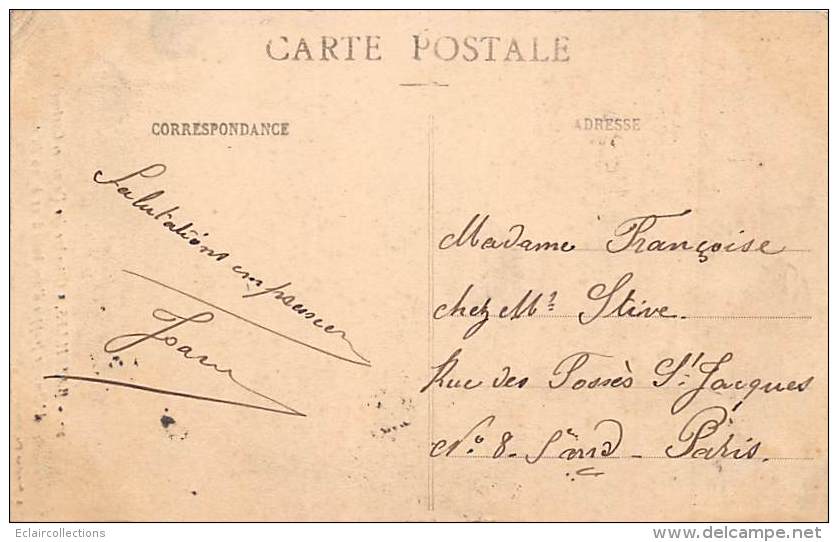 CARTE POSTALE
CORRESPONDANCE
ADRESSE
Salutations empressées
Madame Françoise
chez Mr Stive.
Rue des Fossés St Jacques
No 8. 5e arrd - Paris.
Eclaircollections
www.delcampe.net